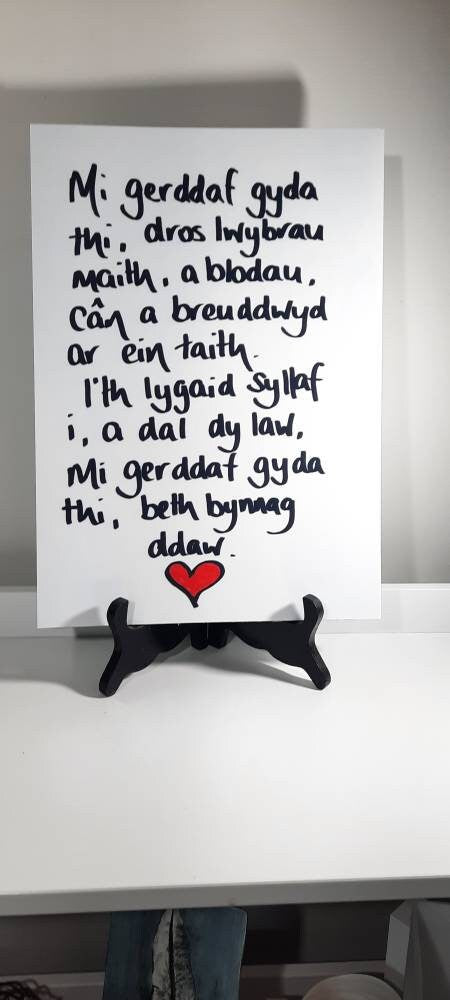 Mi gerddaf gyda
thi, dros lwybrau
maith, a blodau,
cân a breuddwyd
ar ein taith.
I'th lygaid syllaf
i, a dal dy law,
Mi gerddaf gyda
thi, beth bynnag
ddaw.